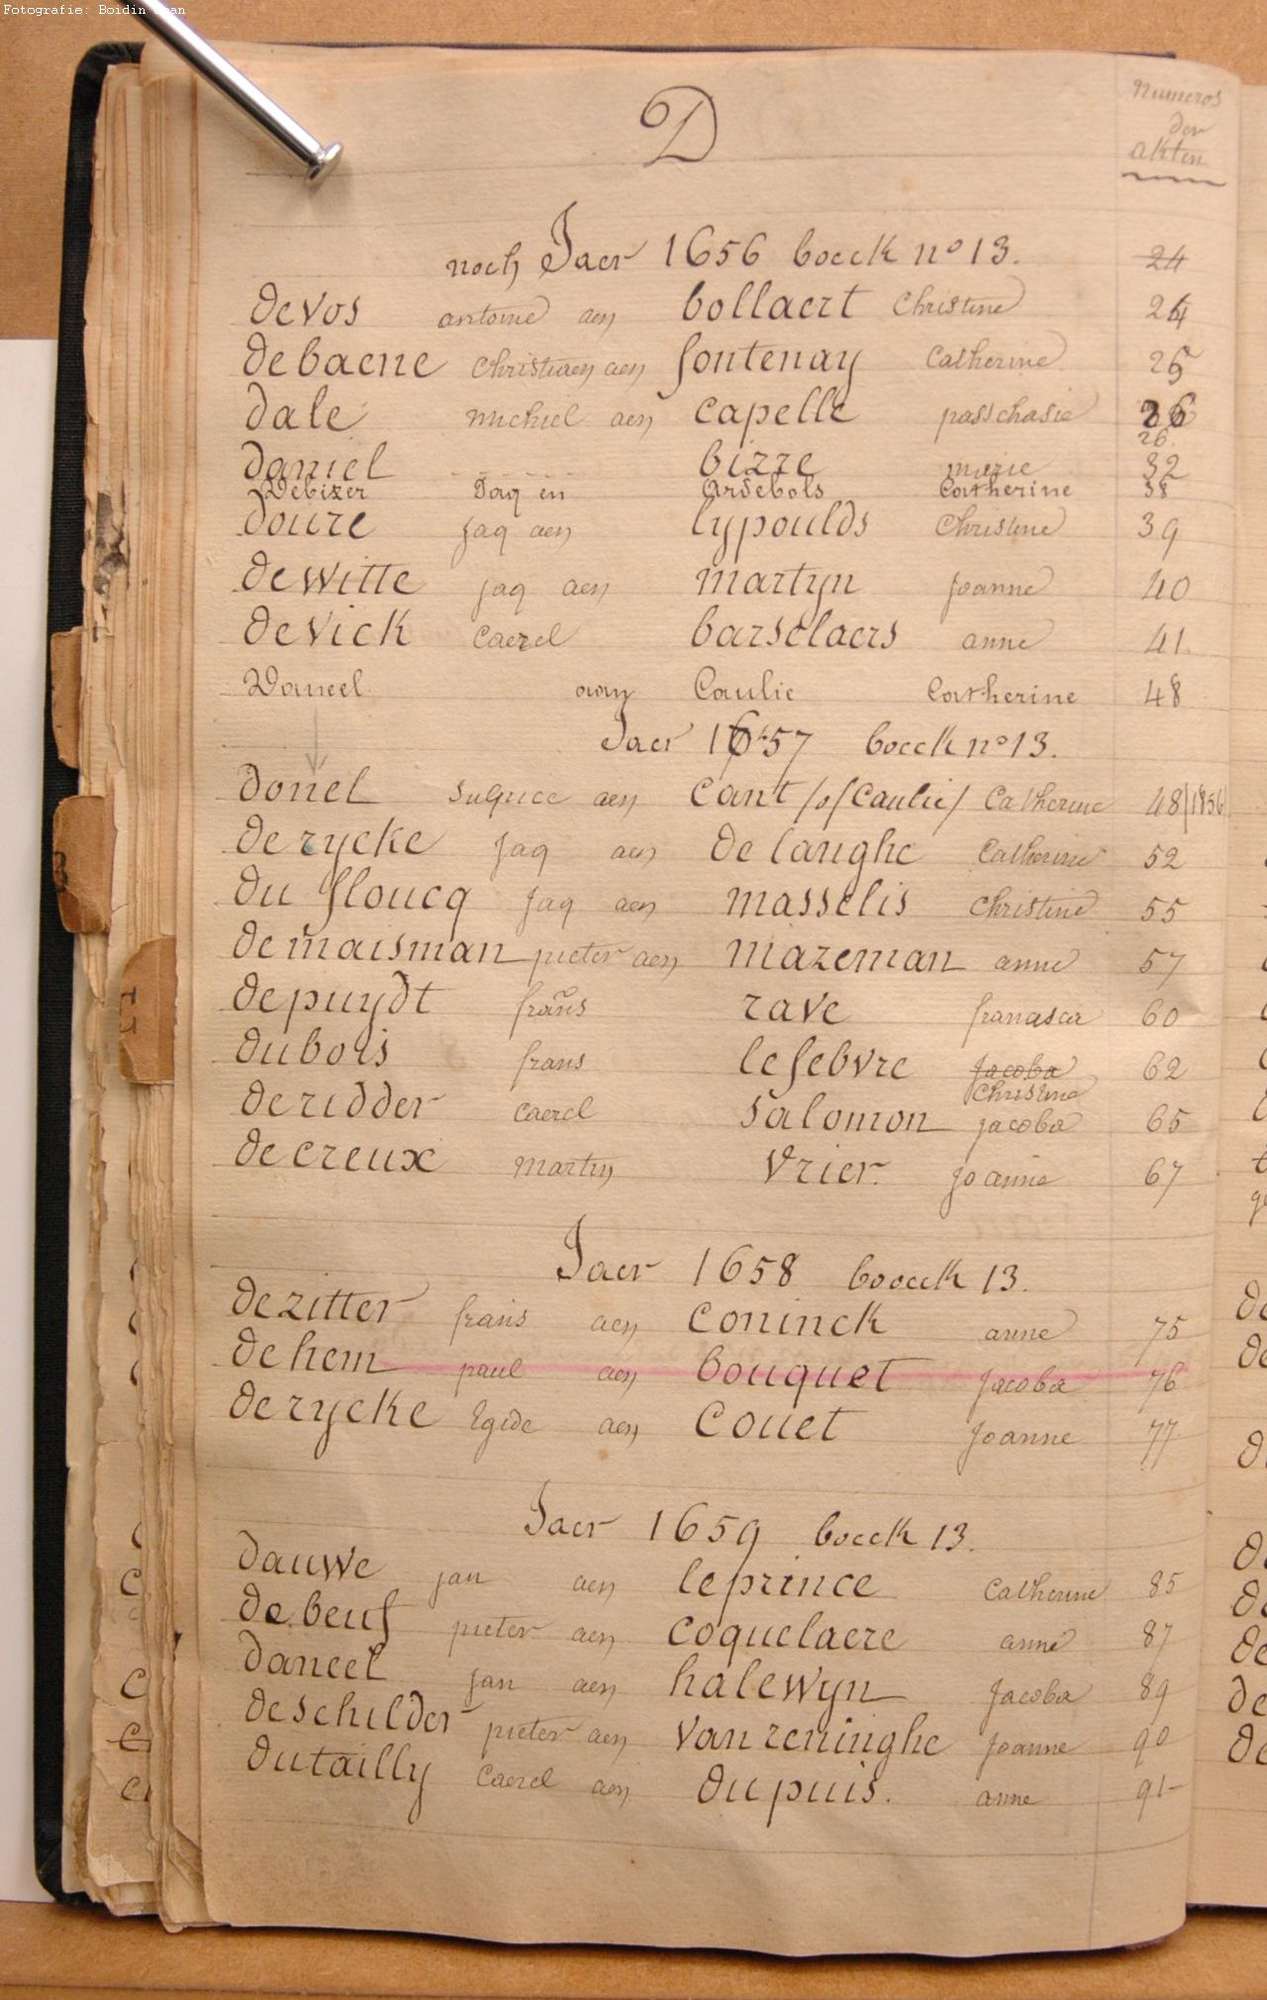 Fotografie: Boidin
D
Numeros
der
akten
noch Jaer 1656 boeck no 13. 24
devos antoine aen bollaert Christine 24
debaene Christiaen aen fontenay Catherine 25
dale michiel aen Capelle passchasie 26
26.
daniel bizre marie 32
Debizer Jaq en Ardebols Catherine 38
doure Jaq aen lypoulds Christine 39
dewitte Jaq aen martyn Joanne 40
devick Caerel barselaers anne 41
Daneel aan Caulie Catherine 48
Jaer 1657 boeck no 13.
donel Sulpice aen Cant /of Caulie/ Catherine 48/1656
derycke Jaq aen de langhe Catherine 52
du floucq Jaq aen masselis Christine 55
demaisman pieter aen mazeman anne 57
depuydt frans rave 60
dubois frans lefebvre Jacoba 62
Christine
deridder caerel Salomon jacoba 65
decreux martin Vrier. Joanne 67
Jaer 1658 boeck 13.
dezitter frans aen Coninck anne 75
dehem paul aen bouquet Jacoba 76
derycke Egide aen Couet Joanne 77
Jaer 1659 boeck 13.
dauwe jan aen leprince Catherine 85
debeuf pieter aen coquelaere anne 87
daneel jan aen halewyn Jacoba 89
deschilder pieter aen Vanreninghe Joanne 90
dutailly Caerel aen dupuis. anne 91